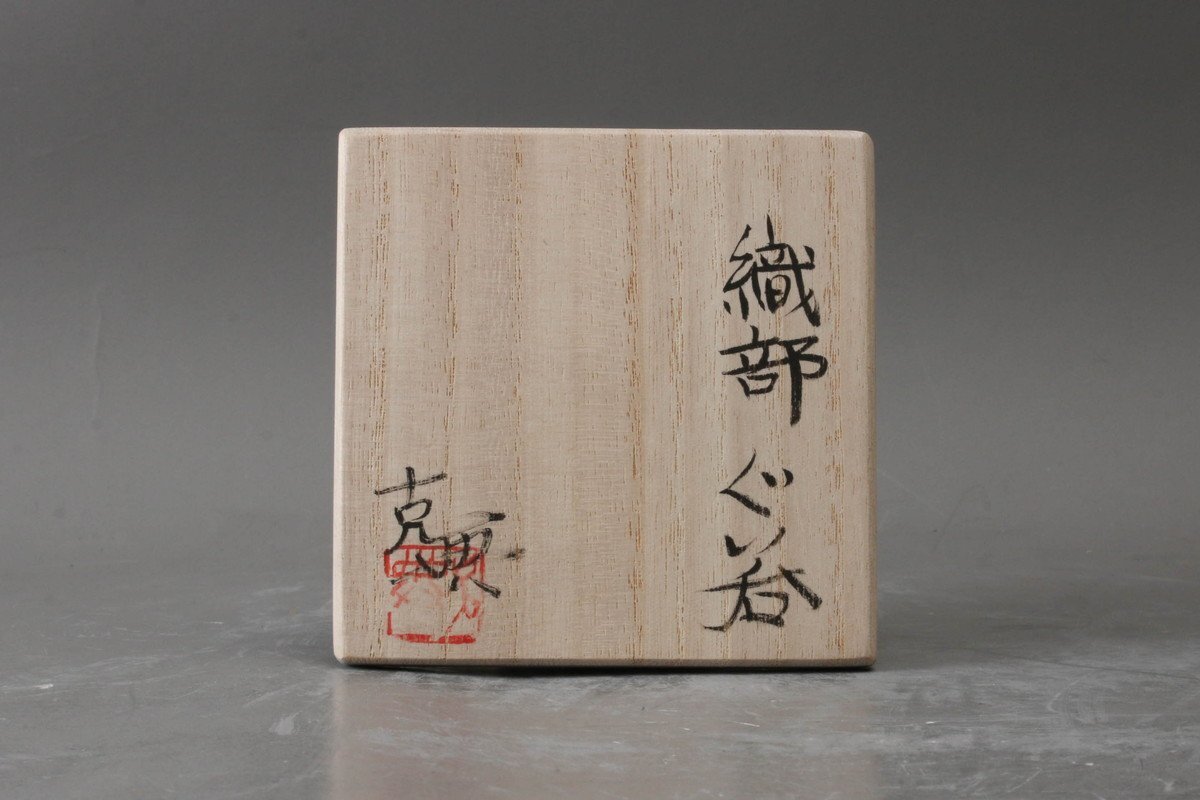 織部 ぐい呑